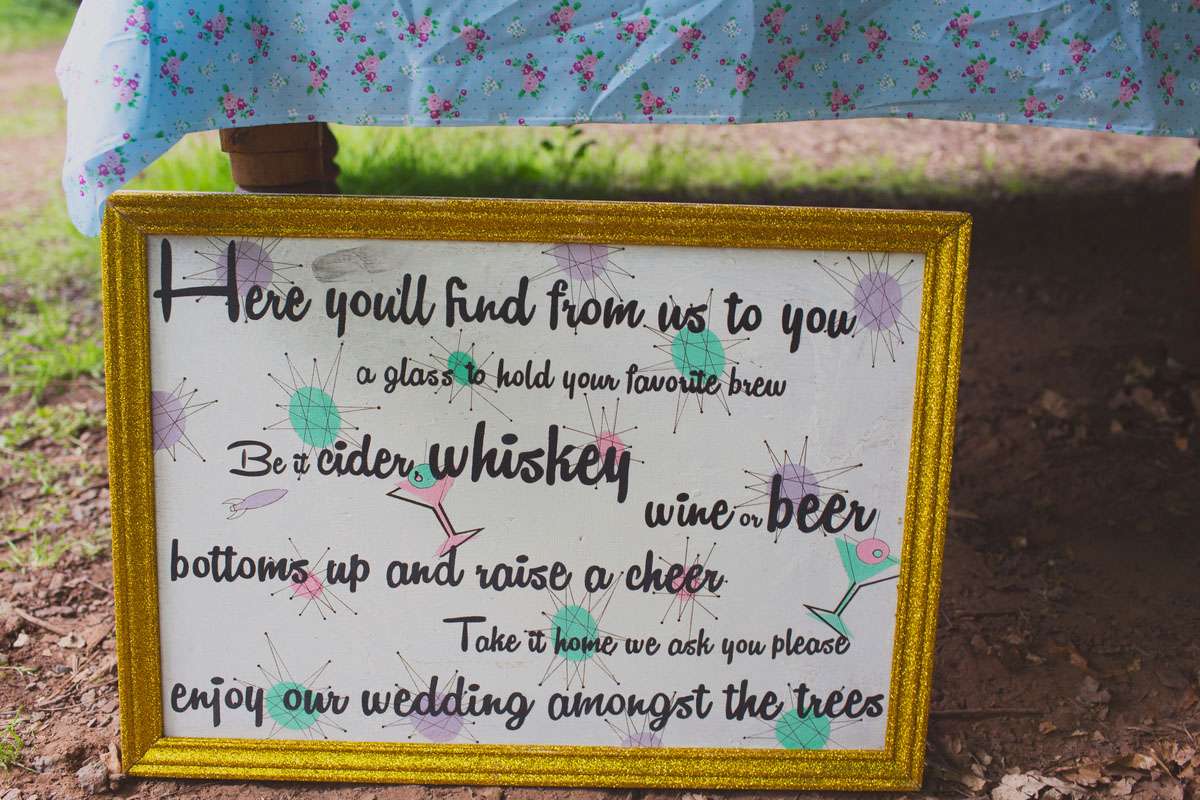 Here you'll find from us to you
a glass to hold your favorite brew
Be it cider, whiskey
wine or beer
bottoms up and raise a cheer
Take it home we ask you please
enjoy our wedding amongst the trees